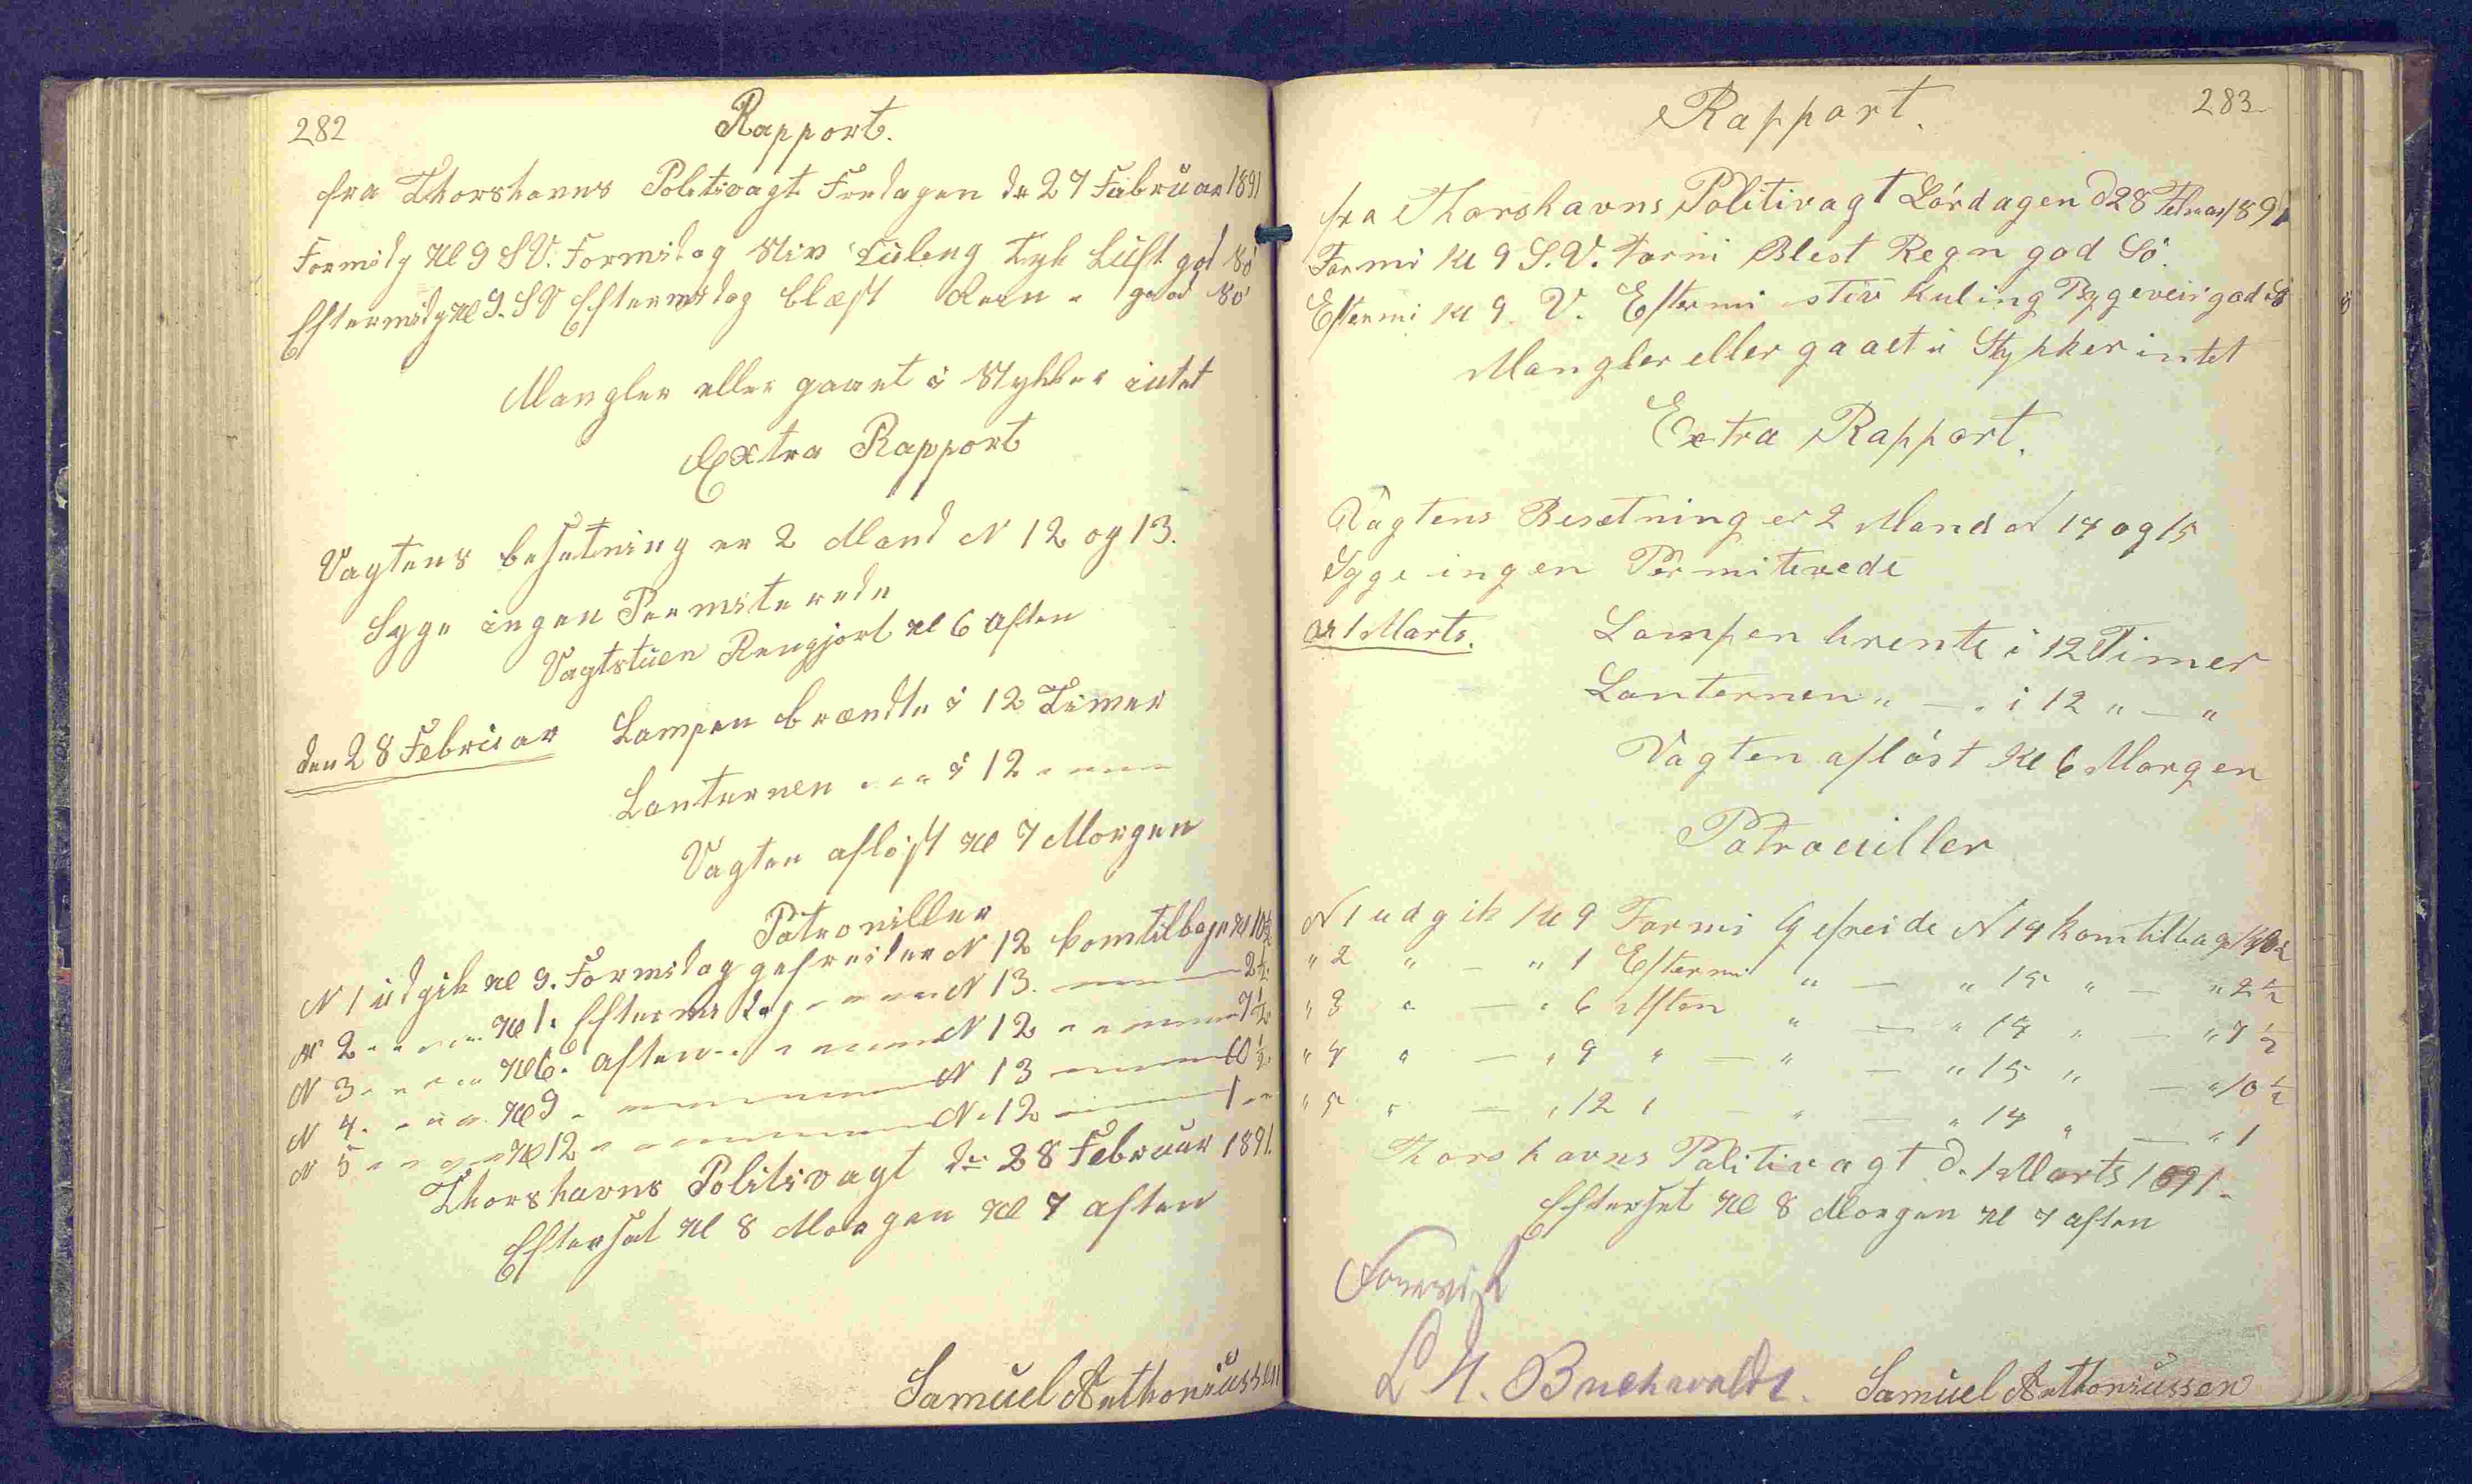 282
Rapport.
fra Thorshavns Politivagt Fredagen dn 27 Februar 1891
Formidg Kl 9 SV. Formidag Stiv Kuling Tyk Luft god Sö
Eftermidg Kl 9. SV Eftermidag blæst Reen " good Sö
Mangler eller gaaet i Stykker intet
Extra Rapport
Vagtens besetning er 2 Mand N 12 og 13.
Syge ingen Permiterede
Vagtstuen Rengjort Kl 6 Aften
den 28 Februar Lampen brændte i 12 Timer
Lanternen " " " i 12 " " " "
Vagten aflöst Kl 7 Morgen
Patroviller
N 1 udgik Kl 9. Formidag gefreider N 12 kom tilbage Kl 10½
N 2 " " " " Kl 1. Eftermidag " " " " N 13. " " " " 2½
N 3 " " " " Kl 6. aften " " " " N 12 " " " " 7½
N 4. " " " Kl 9 " " " " " N 13 " " " " 10½
N 5 " " " " Kl 12 " " " " " N. 12 " " " " 1 " "
Thorshavns Politivagt dn 28 Februar 1891.
Efterset Kl 8 Morgen Kl 7 aften
Samuel Anthoniussen
283
Rapport.
fra Thorshavns Politivagt Lördagen d 28 Februar 1891
Formi Kl 9 S.V. Formi Blest Regn god Sö.
Eftermi Kl 9. V. Eftermi stiv Kuling Bygeveir god Sö
Mangler eller gaaet i Stykker intet
Extra Rapport.
Vagtens Besetning er 2 Mand N 14 og 15
Syge ingen Permiterede
dn 1 Marts. Lampen brente i 12 Timer
Lanternen " — " i 12 " — "
Vagten aflöst Kl 6 Morgen
Patrouiller
N 1 udgik Kl 9 Formi Gefreide N 14 kom tilbage Kl 10½
" 2 " — " 1 Eftermi " — " 15 " — " 2½
" 3 " — " 6 Aften " — " 14 " — " 7½
" 4 " — " 9 " — " — " 15 " — " 10½
" 5 " — " 12 " — " — " 14 " — " 1
Thorshavns Politivagt d. 1 Marts 1891.
Efterset Kl 8 Morgen Kl 7 aften
L H. Buchwaldt. Samuel Anthoniussen